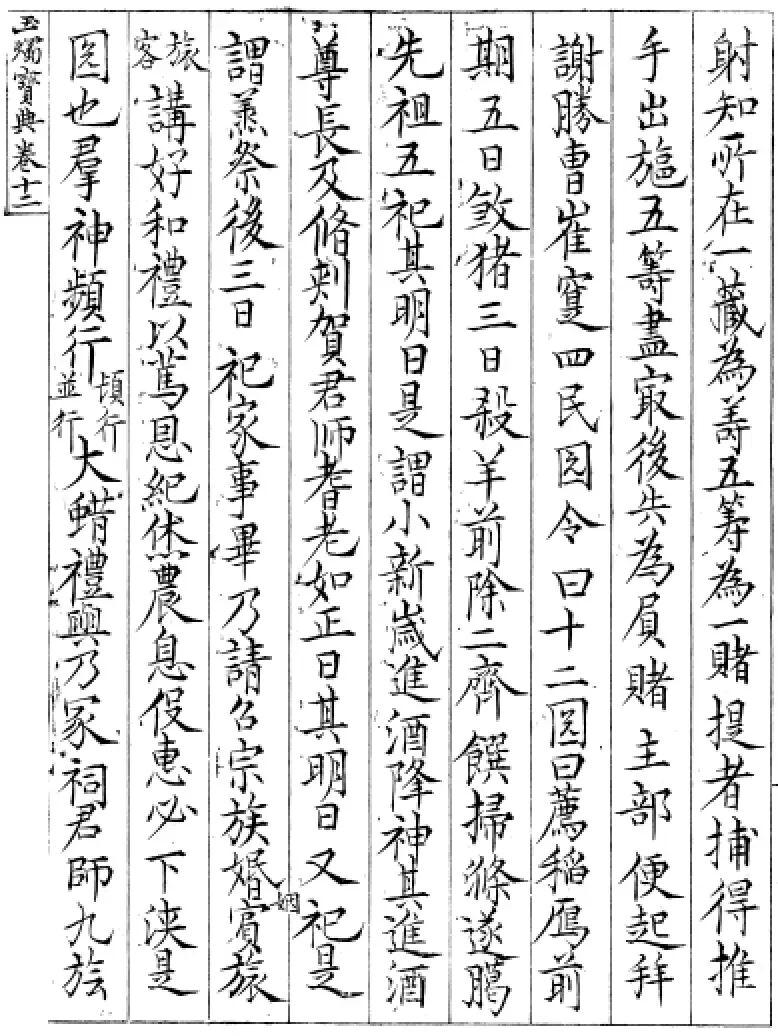 射知所在一藏為籌五筭為一賭提者捕得推
手出施五籌盡㝡後失為負賭主部便起拜
謝勝曺崔寔四民囝令曰十二囝日薦稲鴈前
期五日煞猪三日殺羊前除二齊饌掃滌遂臈
先祖五祀其明日是謂小新歲進酒降神其進酒
尊長及脩刾賀君師耆老如正日其明日又祀是
謂蒸祭後三日祀家事畢乃請召宗族婚姻賓旅
旅客講好和禮以篤恩紀休農息役惠必下浹是
囝也羣神頻行頻行並行大蜡禮興乃冢祠君師九族
玉燭寶典卷十二